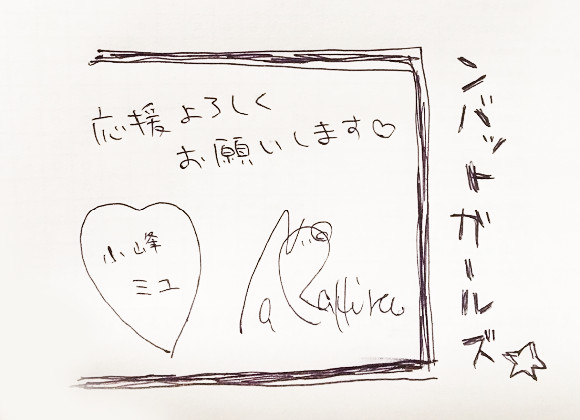 ンバットガールズ☆
応援よろしく
お願いします♡
小峰
ミユ